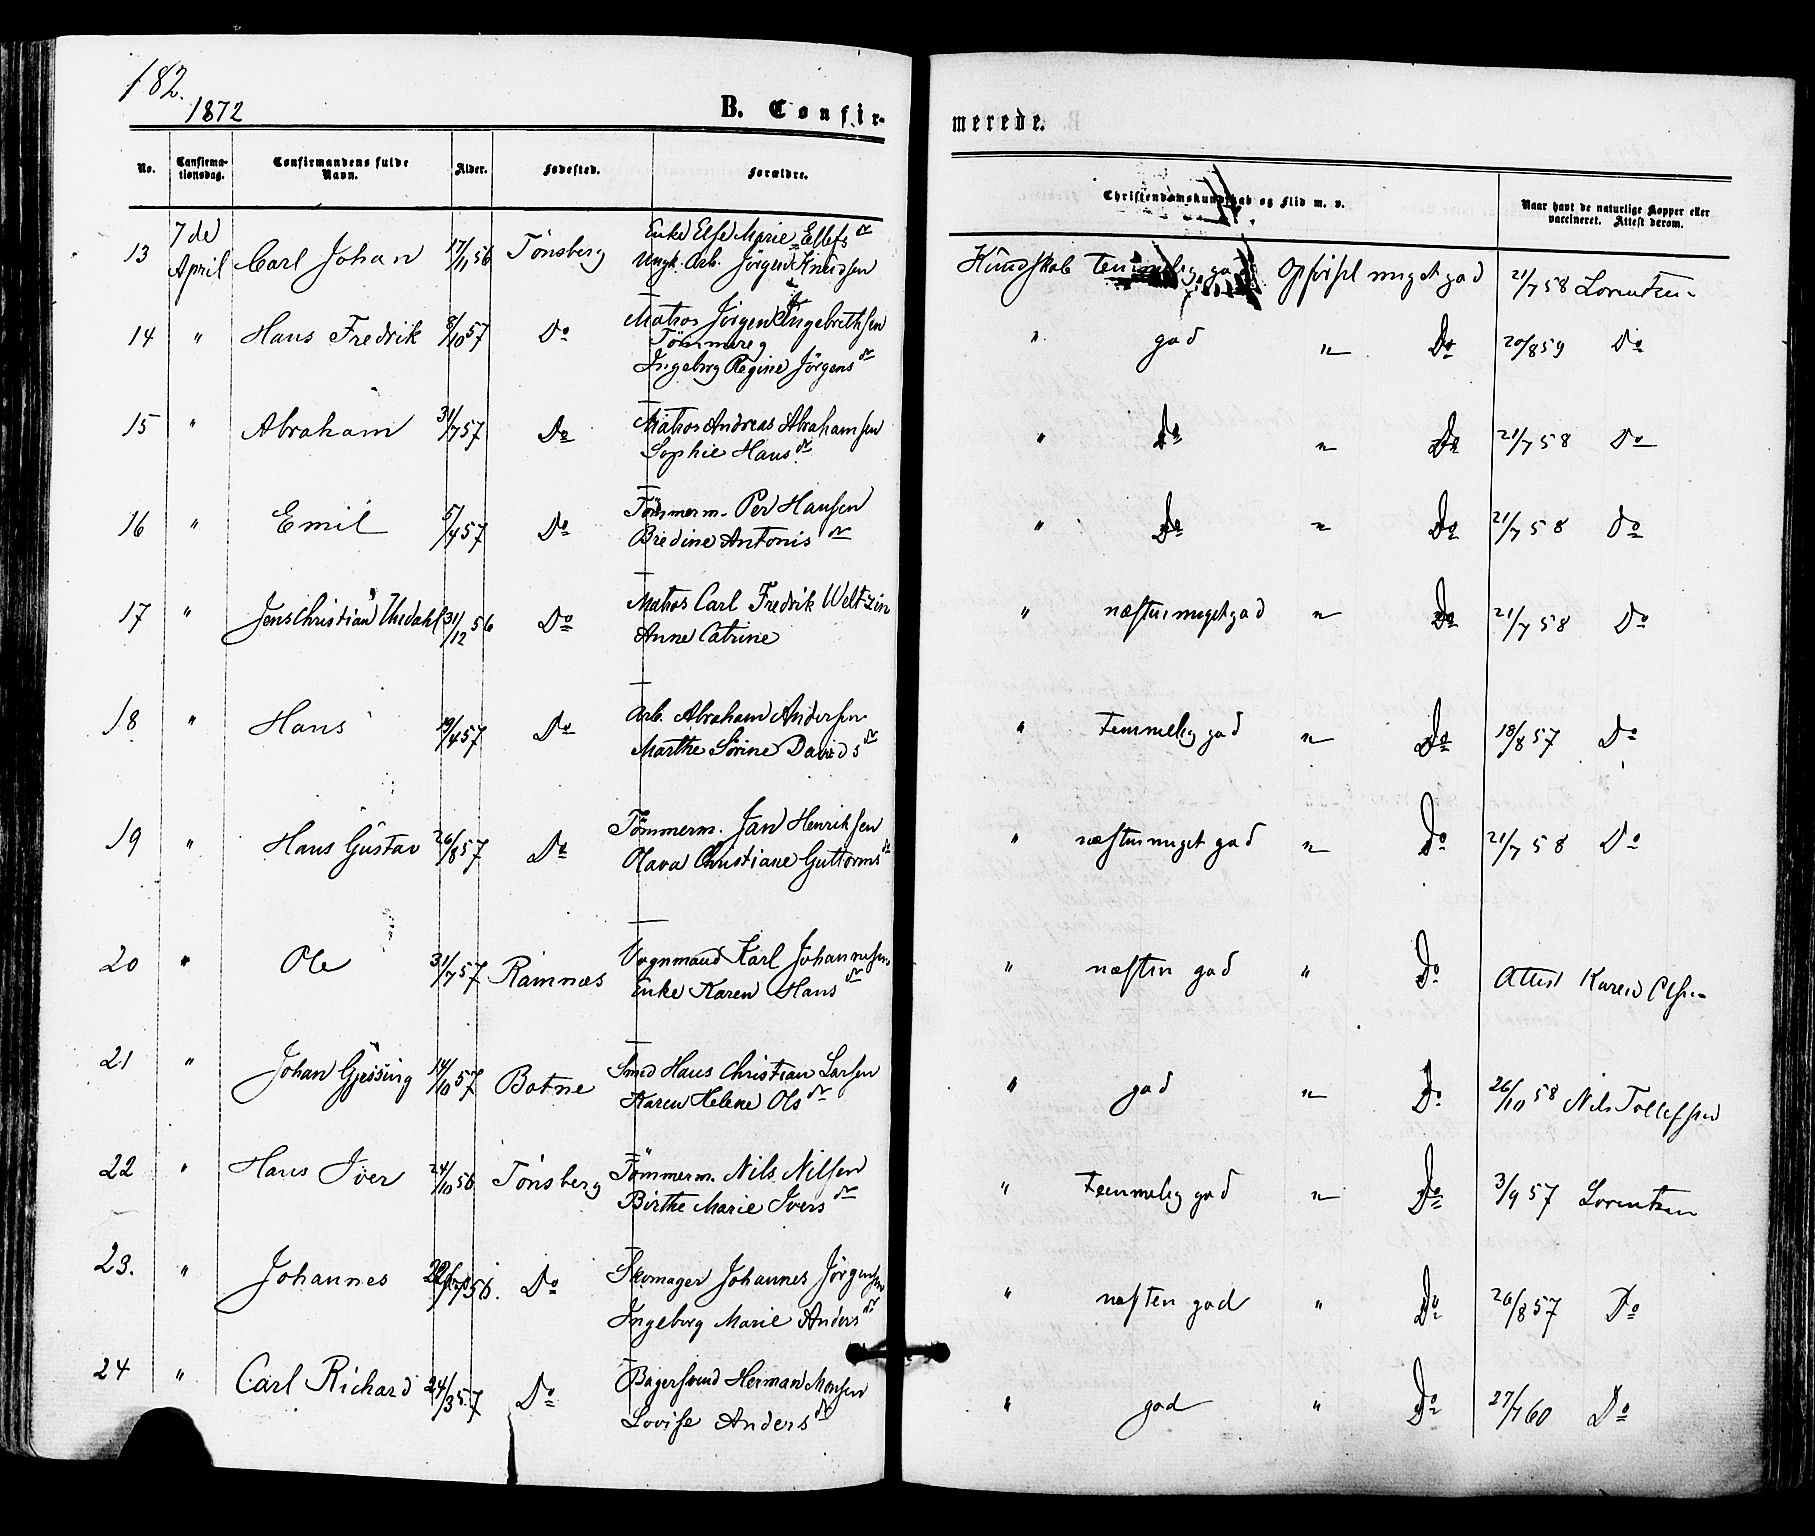 182.
1872
B. Confir-
merede.
No. Canfirma-tionsdag. Confirmandens fulde Navn. Alder. Fødested. Forældre. Christendomskundskab og Flid m. v. Naar havt de naturlige Kopper eller vaccineret. Attest derom.
13 7de April Carl Johan 17/11 56 Tønsberg Enke Else Marie Ellefs dr
Ungk. Arb. Jörgen Knudsen Kundskab temmelig god Opførsel meget god 21/7 58 Lorentzen
14 " Hans Fredrik 8/10 57 Do Matros Jörgen Ingebrethsen
Tömmereg
Ingeborg Regine Jörgens dr " god " Do 20/8 59 Do
15 " Abraham 31/7 57 Do Matros Andreas Abrahamsen
Sophie Hans dr " Do " Do 21/7 58 Do
16 " Emil 5/4 57 Do Tömmerm. Per Hansen
Bredine Antonis dr " Do " Do 21/7 58 Do
17 " Jens Christian Thedahl 31/12 56 Do Matros Carl Fredrik Weltzin
Anne Catrine " næsten meget god " Do 21/7 58 Do
18 " Hans 19/4 57 Do Arb. Abraham Andersen
Marthe Sörine Davids dr " Temmelig god " Do 18/8 57 Do
19 " Hans Gustav 26/8 57 Do Tömmerm. Jan Henriksen
Olava Christiane Guttorms dr " næsten meget god " Do 21/7 58 Do
20 " Ole 31/7 57 Ramnæs Vognmand Karl Johannesen
Enke Karen Hans dr " næsten god " Do Attest Karen Olsen
21 " Johan Gjessing 14/10 57 Botne Smed Hans Christian Larsen
Karen Helene Ols dr " god " Do 26/10 58 Nils Tollefsen
22 " Hans Iver 24/10 56 Tönsberg Tömmerm. Nils Nilsen
Birthe Marie Ivers dr " Temmelig god " Do 3/9 57 Lorentzen
23. " Johannes 56. Do Skomager Johannes Jörgensen
Ingeborg Marie Anders dr " næsten god " Do 26/8 57 Do
24 " Carl Richard 24/3 57 Do Bagersvend Herman Monsen
Lovise Anders dr " god " Do 27/7 60 Do